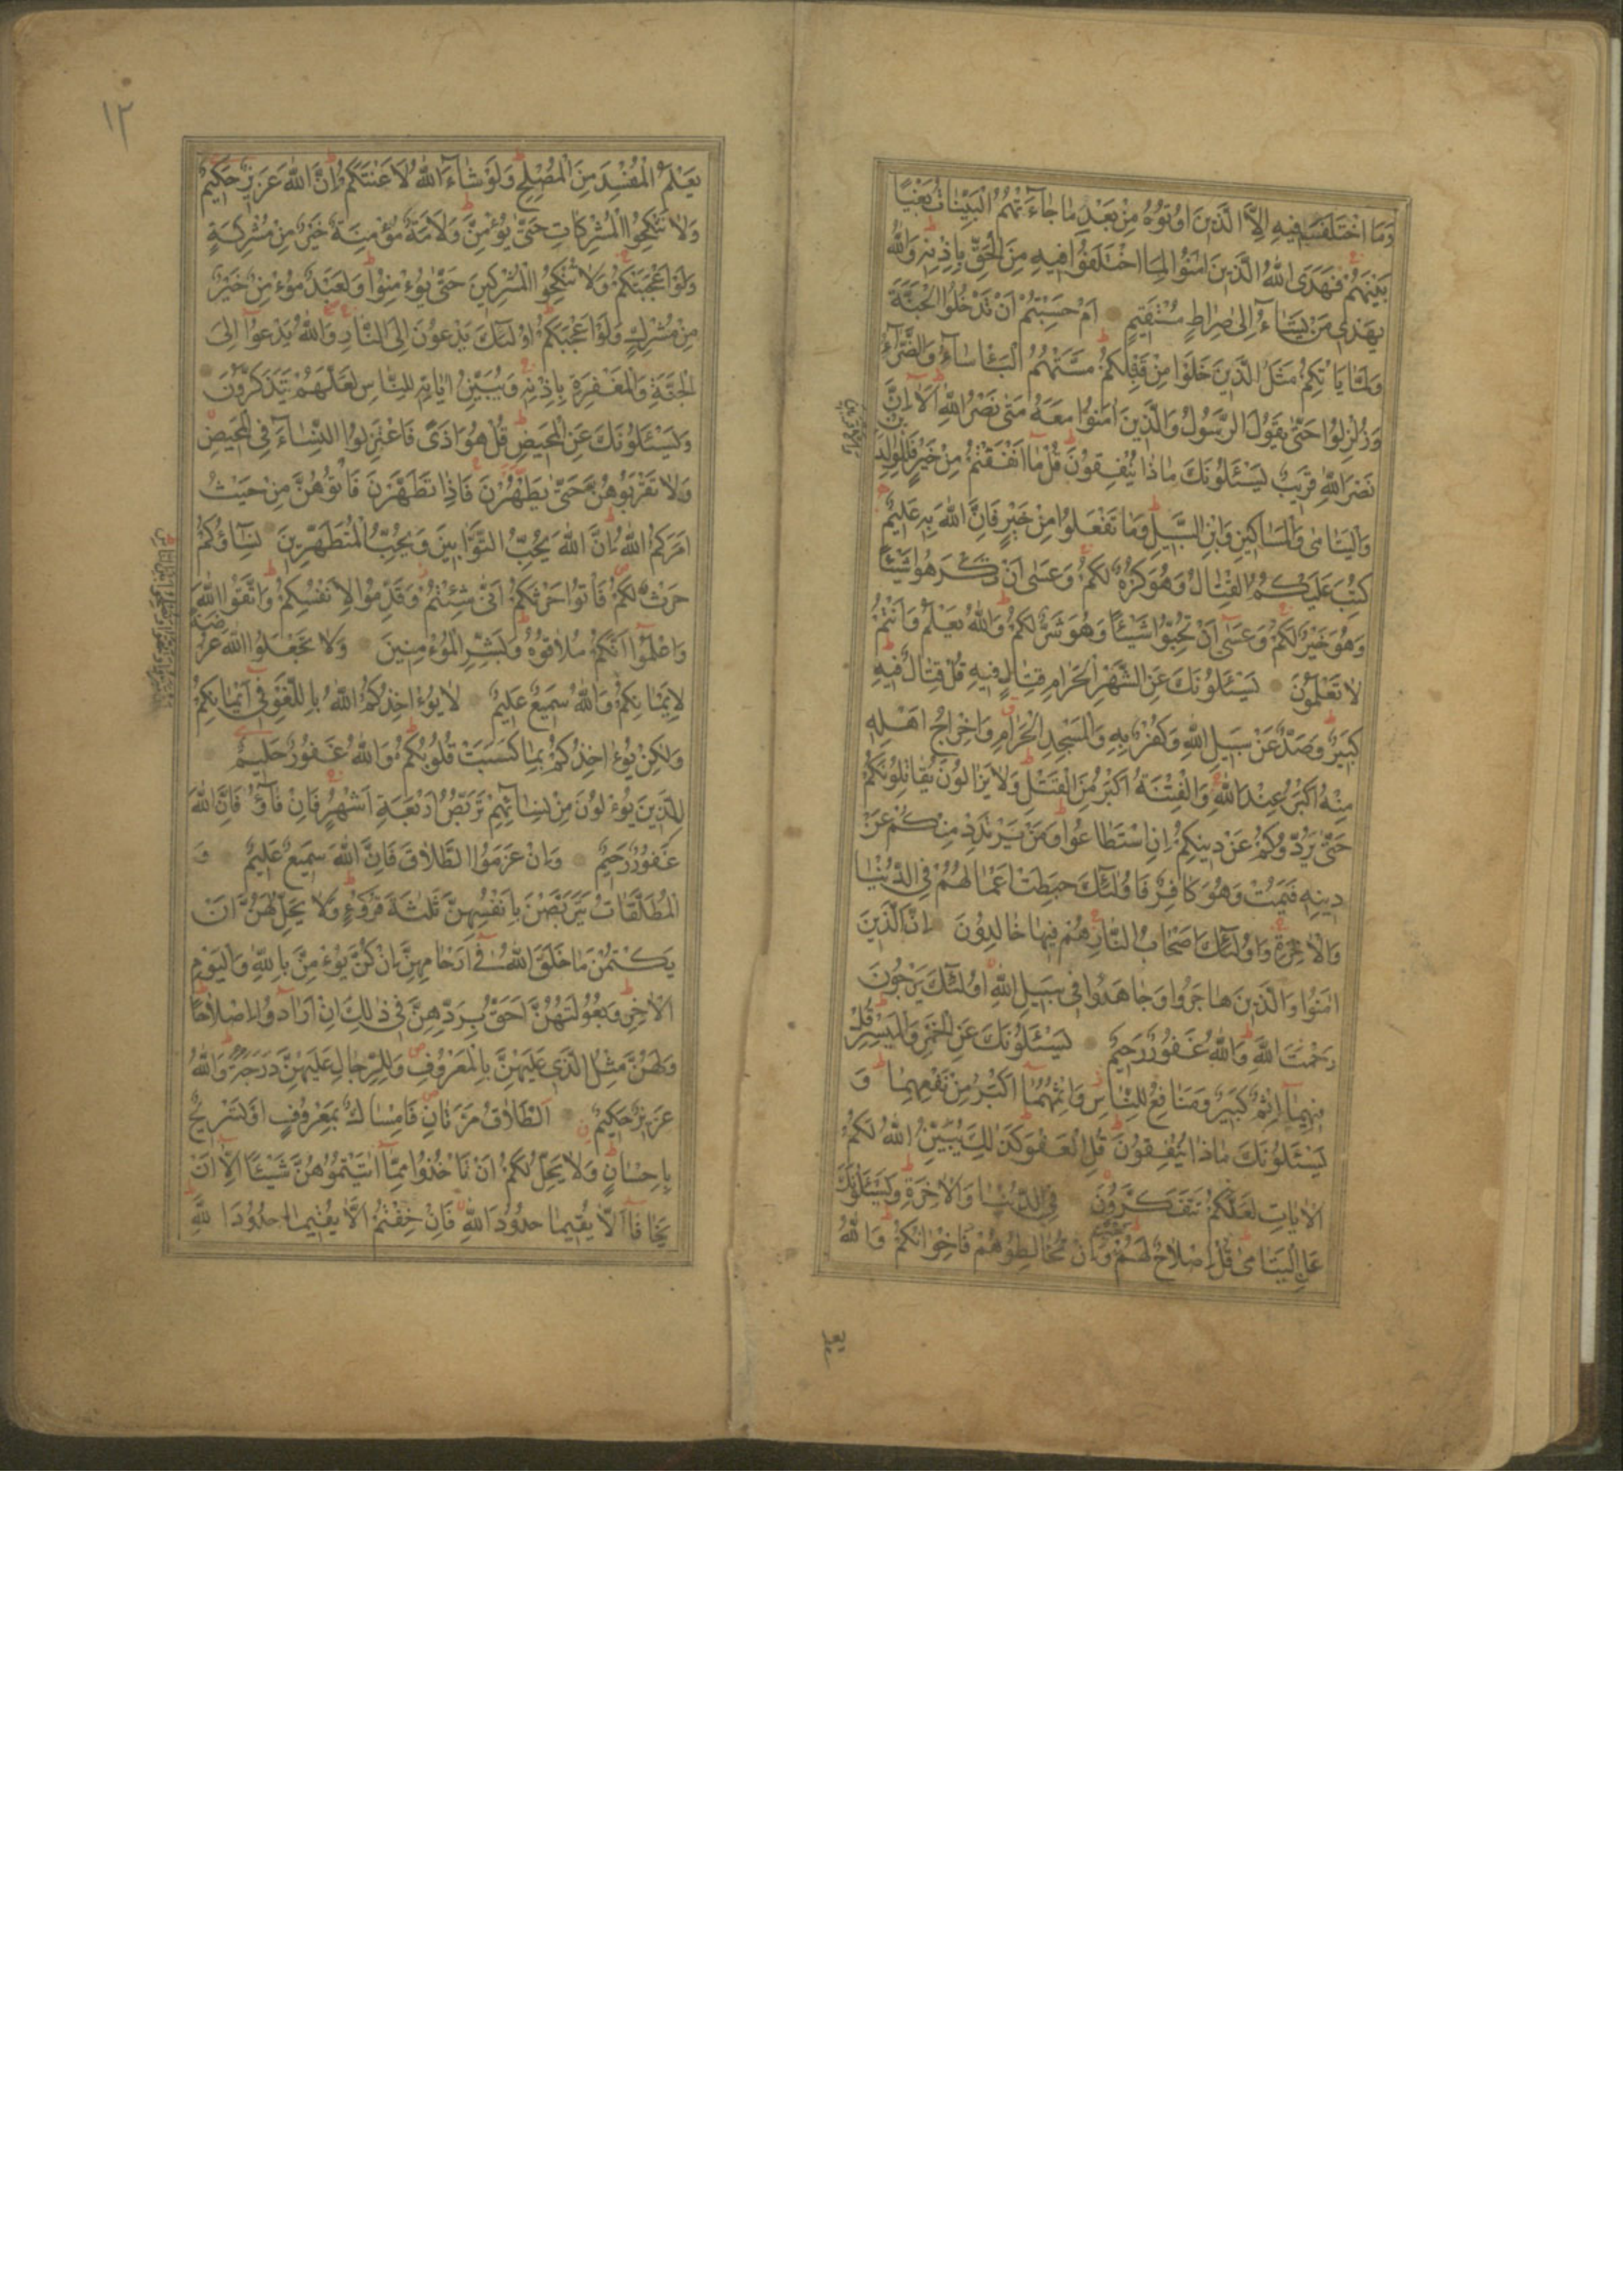 وَمَا اخْتَلَفَ فِيهِ اِلَّا الَّذِينَ اُوتُوهُ مِنْ بَعْدِ مَا جَاءَتْهُمُ الْبَيِّنَاتُ بَغْيًا
بَيْنَهُمْ فَهَدَى اللّٰهُ الَّذِينَ اٰمَنُوا لِمَا اخْتَلَفُوا فِيهِ مِنَ الْحَقِّ بِاِذْنِهِ وَاللّٰهُ
يَهْدِى مَنْ يَشَاءُ اِلٰى صِرَاطٍ مُسْتَقِيمٍ اَمْ حَسِبْتُمْ اَنْ تَدْخُلُوا الْجَنَّةَ
وَلَمَّا يَاْتِكُمْ مَثَلُ الَّذِينَ خَلَوْا مِنْ قَبْلِكُمْ مَسَّتْهُمُ الْبَاْسَاءُ وَالضَّرَّاءُ
وَزُلْزِلُوا حَتّٰى يَقُولَ الرَّسُولُ وَالَّذِينَ اٰمَنُوا مَعَهُ مَتٰى نَصْرُ اللّٰهِ اَلَا اِنَّ
نَصْرَ اللّٰهِ قَرِيبٌ يَسْئَلُونَكَ مَاذَا يُنْفِقُونَ قُلْ مَا اَنْفَقْتُمْ مِنْ خَيْرٍ فَلِلْوٰلِدَيْنِ
وَالْيَتَامٰى وَالْمَسَاكِينِ وَابْنِ السَّبِيلِ وَمَا تَفْعَلُوا مِنْ خَيْرٍ فَاِنَّ اللّٰهَ بِهِ عَلِيمٌ
كُتِبَ عَلَيْكُمُ الْقِتَالُ وَهُوَ كُرْهٌ لَكُمْ وَعَسٰى اَنْ تَكْرَهُوا شَيْئًا
وَهُوَ خَيْرٌ لَكُمْ وَعَسٰى اَنْ تُحِبُّوا شَيْئًا وَهُوَ شَرٌّ لَكُمْ وَاللّٰهُ يَعْلَمُ وَاَنْتُمْ
لَا تَعْلَمُونَ يَسْئَلُونَكَ عَنِ الشَّهْرِ الْحَرَامِ قِتَالٍ فِيهِ قُلْ قِتَالٌ فِيهِ
كَبِيرٌ وَصَدٌّ عَنْ سَبِيلِ اللّٰهِ وَكُفْرٌ بِهِ وَالْمَسْجِدِ الْحَرَامِ وَاِخْرَاجُ اَهْلِهِ
مِنْهُ اَكْبَرُ عِنْدَ اللّٰهِ وَالْفِتْنَةُ اَكْبَرُ مِنَ الْقَتْلِ وَلَا يَزَالُونَ يُقَاتِلُونَكُمْ
حَتّٰى يَرُدُّوكُمْ عَنْ دِينِكُمْ اِنِ اسْتَطَاعُوا وَمَنْ يَرْتَدِدْ مِنْكُمْ عَنْ
دِينِهِ فَيَمُتْ وَهُوَ كَافِرٌ فَاُولٰئِكَ حَبِطَتْ اَعْمَالُهُمْ فِى الدُّنْيَا
وَالْاٰخِرَةِ وَاُولٰئِكَ اَصْحَابُ النَّارِ هُمْ فِيهَا خَالِدُونَ اِنَّ الَّذِينَ
اٰمَنُوا وَالَّذِينَ هَاجَرُوا وَجَاهَدُوا فِى سَبِيلِ اللّٰهِ اُولٰئِكَ يَرْجُونَ
رَحْمَتَ اللّٰهِ وَاللّٰهُ غَفُورٌ رَحِيمٌ يَسْئَلُونَكَ عَنِ الْخَمْرِ وَالْمَيْسِرِ قُلْ
فِيهِمَا اِثْمٌ كَبِيرٌ وَمَنَافِعُ لِلنَّاسِ وَاِثْمُهُمَا اَكْبَرُ مِنْ نَفْعِهِمَا وَ
يَسْئَلُونَكَ مَاذَا يُنْفِقُونَ قُلِ الْعَفْوَ كَذٰلِكَ يُبَيِّنُ اللّٰهُ لَكُمُ
الْاٰيَاتِ لَعَلَّكُمْ تَتَفَكَّرُونَ فِى الدُّنْيَا وَالْاٰخِرَةِ وَيَسْئَلُونَكَ
عَنِ الْيَتَامٰى قُلْ اِصْلَاحٌ لَهُمْ خَيْرٌ وَاِنْ تُخَالِطُوهُمْ فَاِخْوَانُكُمْ وَاللّٰهُ
يعلم
١٢
يَعْلَمُ الْمُفْسِدَ مِنَ الْمُصْلِحِ وَلَوْ شَاءَ اللّٰهُ لَاَعْنَتَكُمْ اِنَّ اللّٰهَ عَزِيزٌ حَكِيمٌ
وَلَا تَنْكِحُوا الْمُشْرِكَاتِ حَتّٰى يُؤْمِنَّ وَلَاَمَةٌ مُؤْمِنَةٌ خَيْرٌ مِنْ مُشْرِكَةٍ
وَلَوْ اَعْجَبَتْكُمْ وَلَا تُنْكِحُوا الْمُشْرِكِينَ حَتّٰى يُؤْمِنُوا وَلَعَبْدٌ مُؤْمِنٌ خَيْرٌ
مِنْ مُشْرِكٍ وَلَوْ اَعْجَبَكُمْ اُولٰئِكَ يَدْعُونَ اِلَى النَّارِ وَاللّٰهُ يَدْعُوا اِلَى
الْجَنَّةِ وَالْمَغْفِرَةِ بِاِذْنِهِ وَيُبَيِّنُ اٰيَاتِهِ لِلنَّاسِ لَعَلَّهُمْ يَتَذَكَّرُونَ
وَيَسْئَلُونَكَ عَنِ الْمَحِيضِ قُلْ هُوَ اَذًى فَاعْتَزِلُوا النِّسَاءَ فِى الْمَحِيضِ
وَلَا تَقْرَبُوهُنَّ حَتّٰى يَطْهُرْنَ فَاِذَا تَطَهَّرْنَ فَاْتُوهُنَّ مِنْ حَيْثُ
اَمَرَكُمُ اللّٰهُ اِنَّ اللّٰهَ يُحِبُّ التَّوَّابِينَ وَيُحِبُّ الْمُتَطَهِّرِينَ نِسَاؤُكُمْ
حَرْثٌ لَكُمْ فَاْتُوا حَرْثَكُمْ اَنّٰى شِئْتُمْ وَقَدِّمُوا لِاَنْفُسِكُمْ وَاتَّقُوا اللّٰهَ
وَاعْلَمُوا اَنَّكُمْ مُلَاقُوهُ وَبَشِّرِ الْمُؤْمِنِينَ وَلَا تَجْعَلُوا اللّٰهَ عُرْضَةً
لِاَيْمَانِكُمْ وَاللّٰهُ سَمِيعٌ عَلِيمٌ لَا يُؤَاخِذُكُمُ اللّٰهُ بِاللَّغْوِ فِى اَيْمَانِكُمْ
وَلٰكِنْ يُؤَاخِذُكُمْ بِمَا كَسَبَتْ قُلُوبُكُمْ وَاللّٰهُ غَفُورٌ حَلِيمٌ
لِلَّذِينَ يُؤْلُونَ مِنْ نِسَائِهِمْ تَرَبُّصُ اَرْبَعَةِ اَشْهُرٍ فَاِنْ فَاؤُ فَاِنَّ اللّٰهَ
غَفُورٌ رَحِيمٌ وَاِنْ عَزَمُوا الطَّلَاقَ فَاِنَّ اللّٰهَ سَمِيعٌ عَلِيمٌ وَ
الْمُطَلَّقَاتُ يَتَرَبَّصْنَ بِاَنْفُسِهِنَّ ثَلٰثَةَ قُرُوءٍ وَلَا يَحِلُّ لَهُنَّ اَنْ
يَكْتُمْنَ مَا خَلَقَ اللّٰهُ فِى اَرْحَامِهِنَّ اِنْ كُنَّ يُؤْمِنَّ بِاللّٰهِ وَالْيَوْمِ
الْاٰخِرِ وَبُعُولَتُهُنَّ اَحَقُّ بِرَدِّهِنَّ فِى ذٰلِكَ اِنْ اَرَادُوا اِصْلَاحًا
وَلَهُنَّ مِثْلُ الَّذِى عَلَيْهِنَّ بِالْمَعْرُوفِ وَلِلرِّجَالِ عَلَيْهِنَّ دَرَجَةٌ وَاللّٰهُ
عَزِيزٌ حَكِيمٌ اَلطَّلَاقُ مَرَّتَانِ فَاِمْسَاكٌ بِمَعْرُوفٍ اَوْ تَسْرِيحٌ
بِاِحْسَانٍ وَلَا يَحِلُّ لَكُمْ اَنْ تَاْخُذُوا مِمَّا اٰتَيْتُمُوهُنَّ شَيْئًا اِلَّا اَنْ
يَخَافَا اَلَّا يُقِيمَا حُدُودَ اللّٰهِ فَاِنْ خِفْتُمْ اَلَّا يُقِيمَا حُدُودَ اللّٰهِ